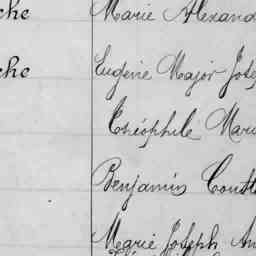 che Marie Alexand
che Eugène Major Jose
Théophile Mari
Benjamin Coutu
Marie Joseph An